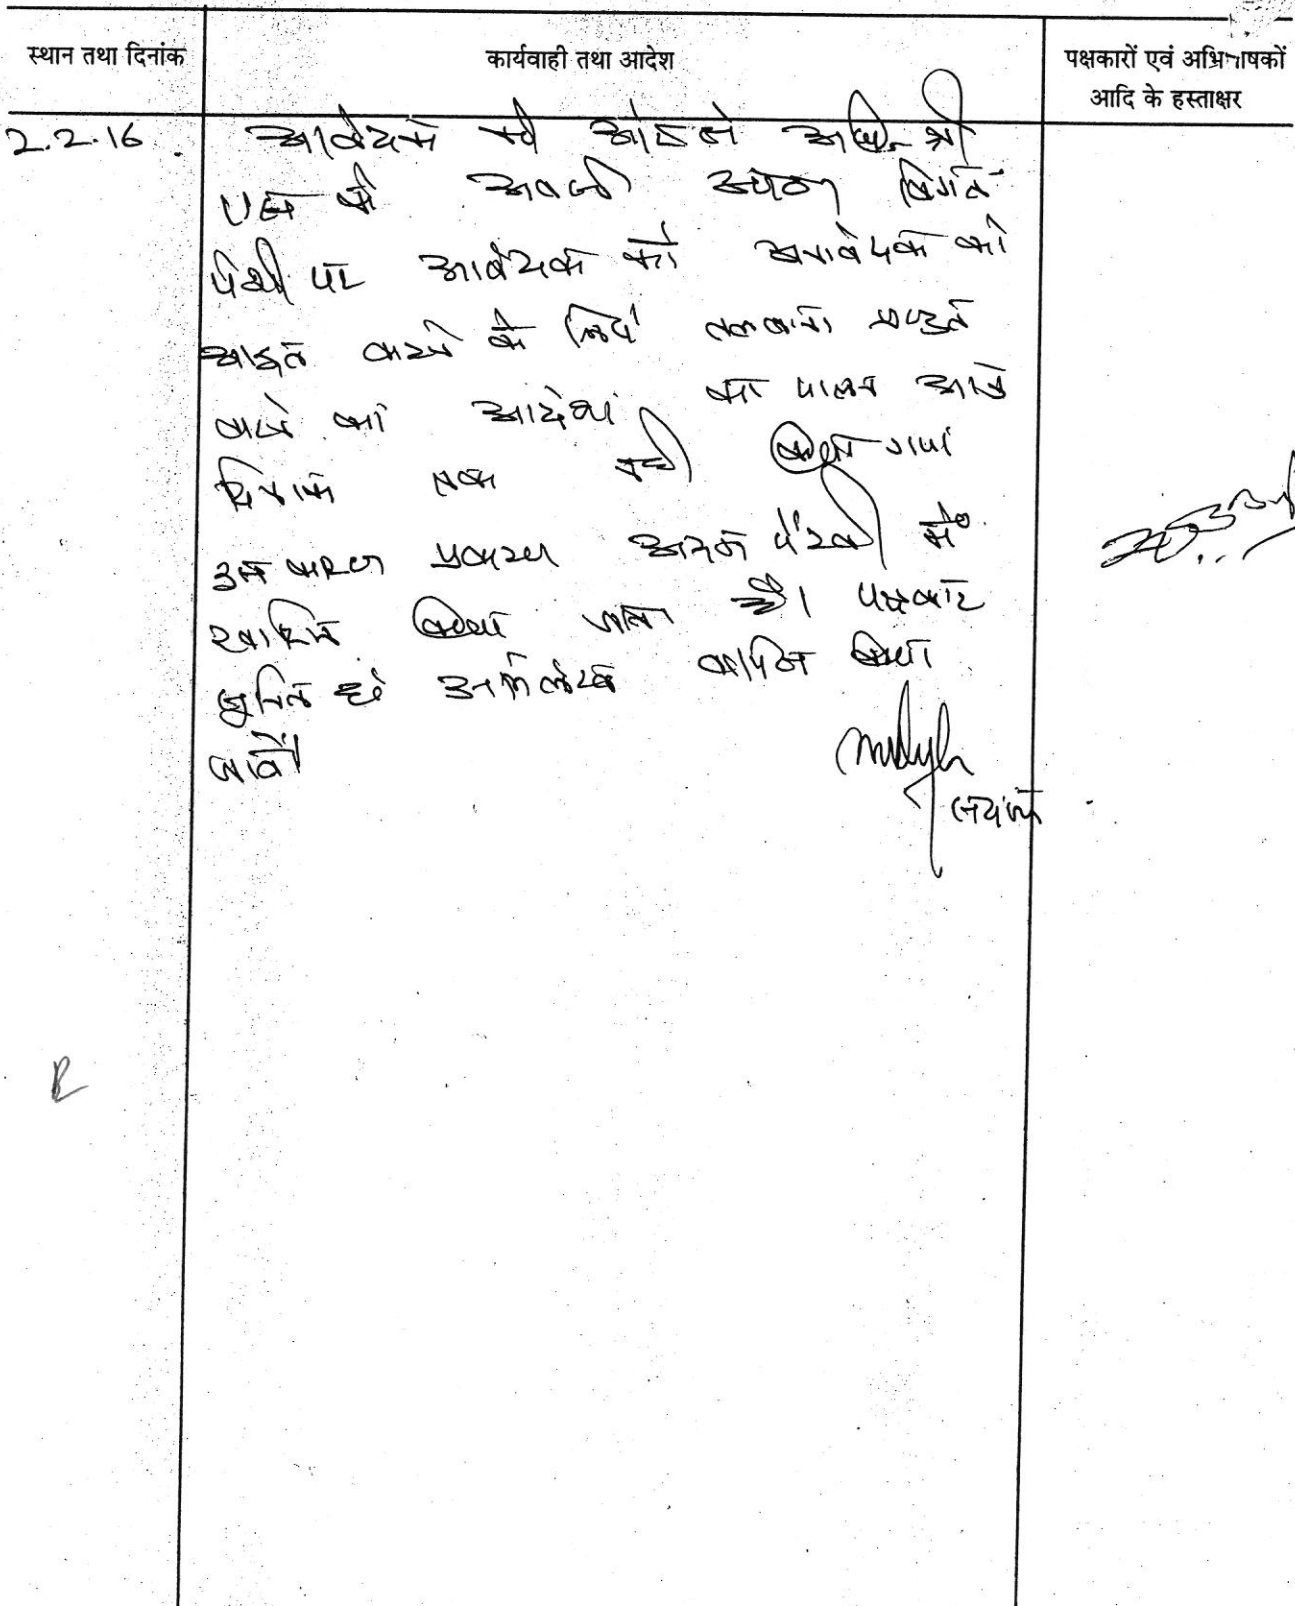 स्थान तथा दिनांक
कार्यवाही तथा आदेश
पक्षकारों एवं अभिभाषकों
आदि के हस्ताक्षर
2.2.16
आवेदक की ओर से अभि. श्री
विगत
पेशी पर आवेदक को अनावेदक को
आहूत करने के लिये तलवाना प्रस्तुत
करने का आदेश का पालन आज
दिनांक तक नहीं किया गया
अतः प्रकरण अदम पैरवी में
खारिज किया जाता है। पक्षकार
सूचित हो अभिलेख वापिस किया
जावे।
सदस्य